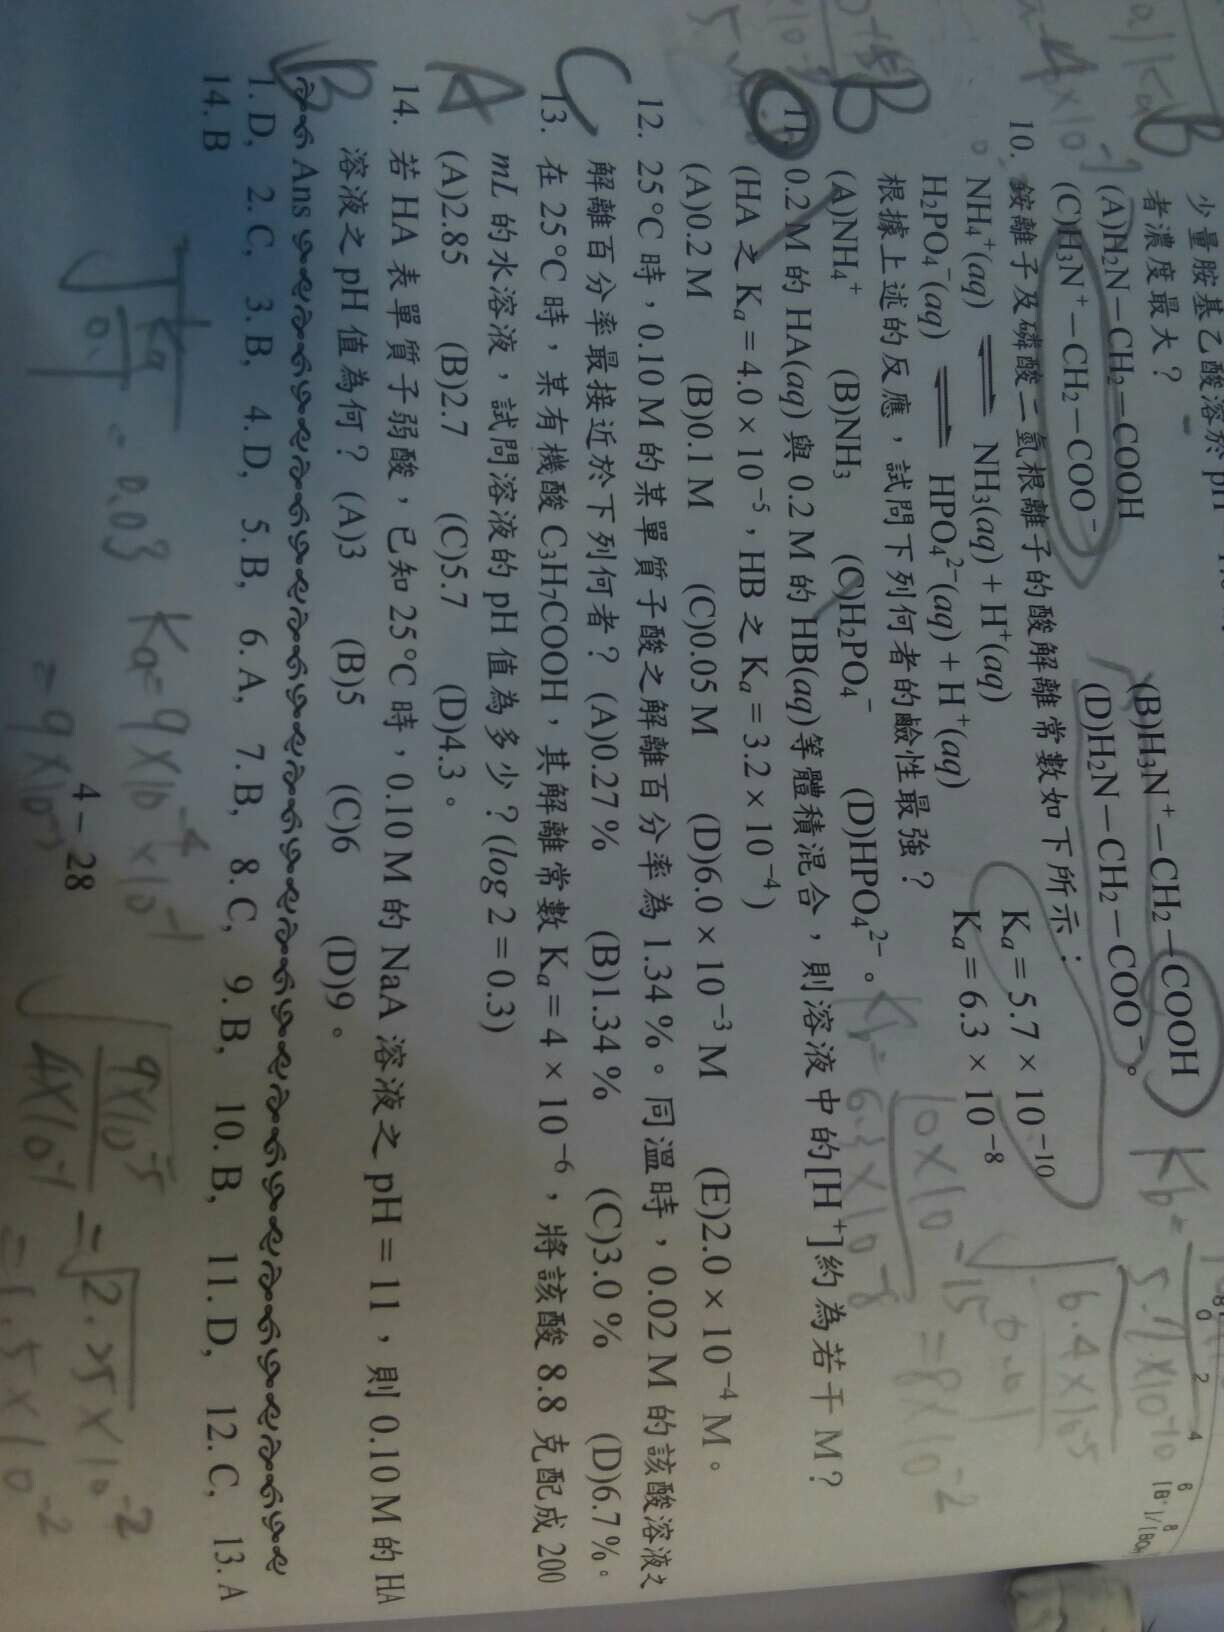 少量胺基乙酸溶於pH
者濃度最大？
(A)H₂N－CH₂－COOH (B)H₃N⁺－CH₂－COOH
(C)H₃N⁺－CH₂－COO⁻ (D)H₂N－CH₂－COO⁻。
B
10. 銨離子及磷酸二氫根離子的酸解離常數如下所示：
NH₄⁺(aq) ⇌ NH₃(aq)＋H⁺(aq) Kₐ＝5.7×10⁻¹⁰
H₂PO₄⁻(aq) ⇌ HPO₄²⁻(aq)＋H⁺(aq) Kₐ＝6.3×10⁻⁸
根據上述的反應，試問下列何者的鹼性最強？
B
(A)NH₄⁺ (B)NH₃ (C)H₂PO₄⁻ (D)HPO₄²⁻。
11. 0.2 M 的 HA(aq) 與 0.2 M 的 HB(aq)等體積混合，則溶液中的[H⁺]約為若干 M？
(HA 之 Kₐ＝4.0×10⁻⁵，HB 之 Kₐ＝3.2×10⁻⁴)
(A)0.2 M (B)0.1 M (C)0.05 M (D)6.0×10⁻³ M (E)2.0×10⁻⁴ M。
12. 25°C 時，0.10 M 的某單質子酸之解離百分率為 1.34 %。同溫時，0.02 M 的該酸溶液之
解離百分率最接近於下列何者？ (A)0.27 % (B)1.34 % (C)3.0 % (D)6.7 %。
C
13. 在 25°C 時，某有機酸 C₃H₇COOH，其解離常數 Kₐ＝4×10⁻⁶，將該酸 8.8 克配成 200
mL 的水溶液，試問溶液的 pH 值為多少？(log 2＝0.3)
A
(A)2.85 (B)2.7 (C)5.7 (D)4.3。
14. 若 HA 表單質子弱酸，已知 25°C 時，0.10 M 的 NaA 溶液之 pH＝11，則 0.10 M 的 HA
溶液之 pH 值為何？ (A)3 (B)5 (C)6 (D)9。
B
Ans
1. D, 2. C, 3. B, 4. D, 5. B, 6. A, 7. B, 8. C, 9. B, 10. B, 11. D, 12. C, 13. A
14. B
4－28
Ka=9×10⁻⁴×10⁻¹
=9×10⁻⁵